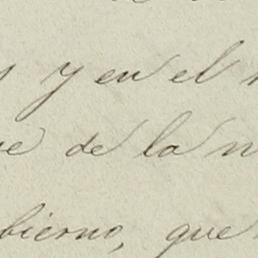 y en el
de la
bierno, que